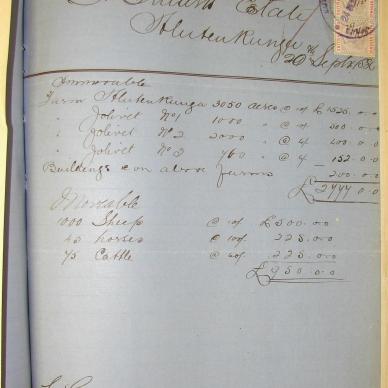 Estate
Hlutenkunga
20 Sept 1880
Immovable
Farm Hlutenkunga 3050 acres @ £ 1525.0.0
" Jolivet No 1 1000 " @ 4 200.0.0
" Jolivet No 2 2000 " @ 4 400.0.0
" Jolivet No 3 760 " @ 4 152.0.0
Buildings &c on above farms 200.0.0
£2477.0.0
Movable
1000 Sheep @ 10/ £500.0.0
45 horses @ 100/ 225.0.0
75 Cattle @ 60/ 225.0.0
£950.0.0